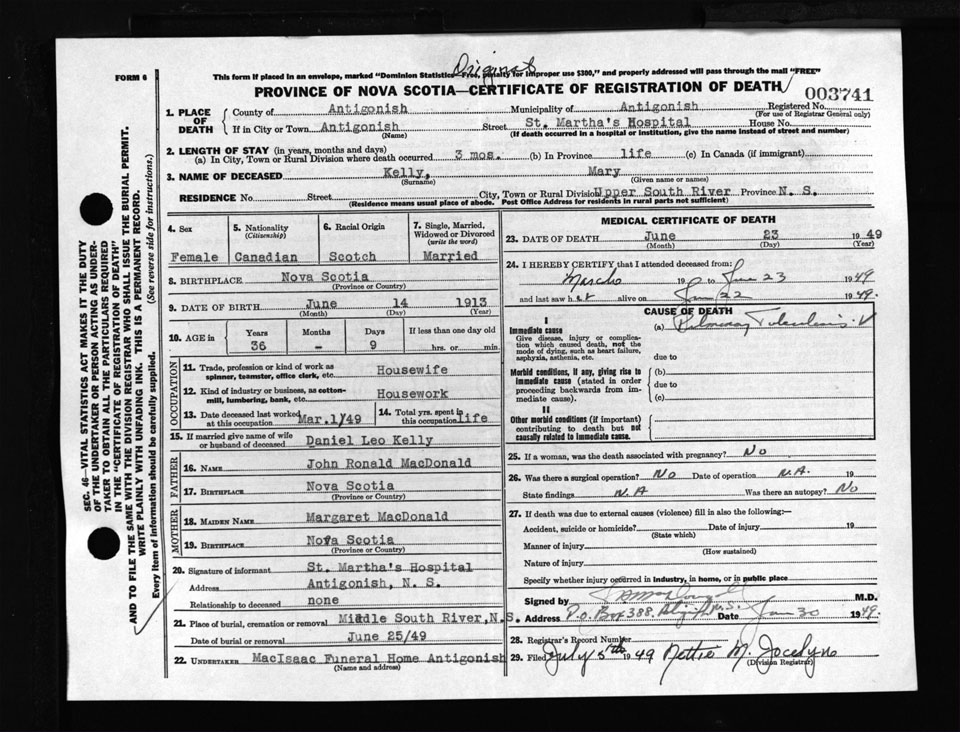 Original
FORM 6
This form if placed in an envelope, marked "Dominion Statistics—Free, penalty for improper use $300," and properly addressed will pass through the mail "FREE"
PROVINCE OF NOVA SCOTIA—CERTIFICATE OF REGISTRATION OF DEATH
003741
1. PLACE OF DEATH
County of Antigonish Municipality of Antigonish Registered No.
(For use of Registrar General only)
If in City or Town Antigonish Street St. Martha's Hospital House No.
(Name) (If death occurred in a hospital or institution, give the name instead of street and number)
2. LENGTH OF STAY (in years, months and days)
(a) In City, Town or Rural Division where death occurred 3 mos. (b) In Province life (c) In Canada (if immigrant)
3. NAME OF DECEASED Kelly, Mary
(Surname) (Given name or names)
RESIDENCE No. Street City, Town or Rural Division Upper South River Province N. S.
(Residence means usual place of abode. Post Office Address for residents in rural parts not sufficient)
4. Sex
Female
5. Nationality
(Citizenship)
Canadian
6. Racial Origin
Scotch
7. Single, Married,
Widowed or Divorced
(write the word)
Married
8. BIRTHPLACE Nova Scotia
(Province or Country)
9. DATE OF BIRTH June 14 1913
(Month) (Day) (Year)
10. AGE in
Years Months Days If less than one day old
36 - 9 hrs. or min.
OCCUPATION
11. Trade, profession or kind of work as
spinner, teamster, office clerk, etc. Housewife
12. Kind of industry or business, as cotton-
mill, lumbering, bank, etc. Housework
13. Date deceased last worked
at this occupation Mar.1/49
14. Total yrs. spent in
this occupation life
15. If married give name of wife
or husband of deceased Daniel Leo Kelly
FATHER
16. NAME John Ronald MacDonald
17. BIRTHPLACE Nova Scotia
(Province or Country)
MOTHER
18. MAIDEN NAME Margaret MacDonald
19. BIRTHPLACE Nova Scotia
(Province or Country)
20. Signature of informant St. Martha's Hospital
Address Antigonish, N. S.
Relationship to deceased none
21. Place of burial, cremation or removal Middle South River, N.S.
Date of burial or removal June 25/49
22. UNDERTAKER MacIsaac Funeral Home Antigonish
(Name and address)
MEDICAL CERTIFICATE OF DEATH
23. DATE OF DEATH June 23 1949
(Month) (Day) (Year)
24. I HEREBY CERTIFY that I attended deceased from:
March 19 to June 23 1949
and last saw her alive on June 22 1949.
CAUSE OF DEATH
I
Immediate cause
Give disease, injury or complica-
tion which caused death, not the
mode of dying, such as heart failure,
asphyxia, asthenia, etc.
(a) Pulmonary Tuberculosis
due to
Morbid conditions, if any, giving rise to
immediate cause (stated in order
proceeding backwards from im-
mediate cause).
(b)
due to
(c)
II
Other morbid conditions (if important)
contributing to death but not
causally related to immediate cause.
25. If a woman, was the death associated with pregnancy? No
26. Was there a surgical operation? No Date of operation N.A. 19
State findings N.A Was there an autopsy? No
27. If death was due to external causes (violence) fill in also the following:—
Accident, suicide or homicide? Date of injury 19
(State which)
Manner of injury
(How sustained)
Nature of injury
Specify whether injury occurred in industry, in home, or in public place
Signed by M.D.
Address P.O. Box 388, N.S. Date June 30 1949.
28. Registrar's Record Number
29. Filed July 5th 1949 Nettie M. Jocelyne
(Division Registrar)
SEC. 46—VITAL STATISTICS ACT MAKES IT THE DUTY
OF THE UNDERTAKER OR PERSON ACTING AS UNDER-
TAKER TO OBTAIN ALL THE PARTICULARS REQUIRED
IN THE "CERTIFICATE OF REGISTRATION OF DEATH"
AND TO FILE THE SAME WITH THE DIVISION REGISTRAR WHO SHALL ISSUE THE BURIAL PERMIT.
WRITE PLAINLY WITH UNFADING INK. THIS IS A PERMANENT RECORD.
Every item of information should be carefully supplied. (See reverse side for instructions.)